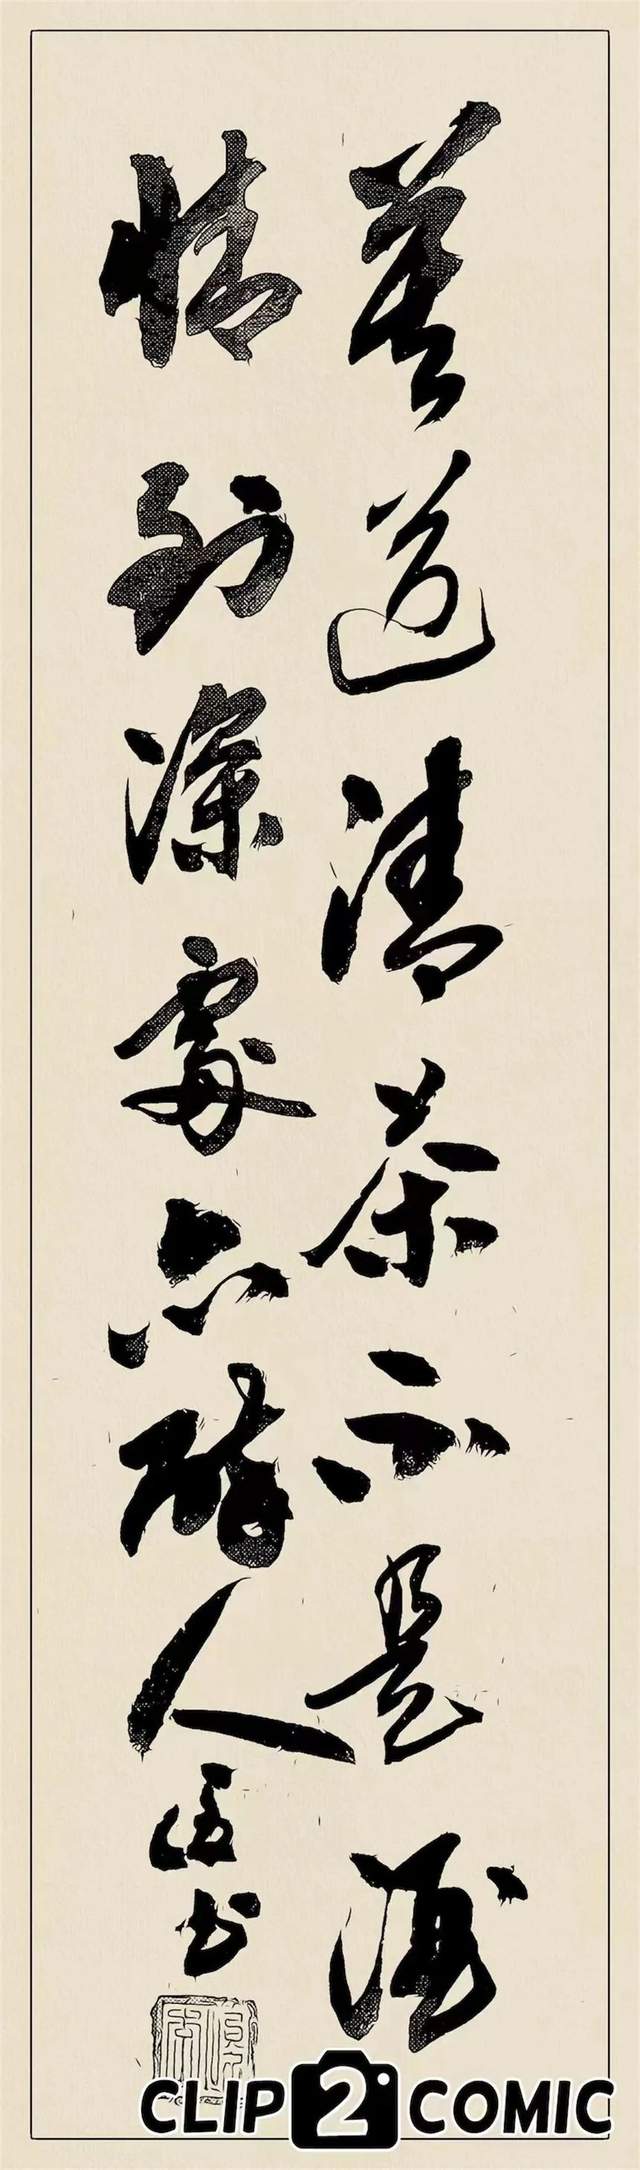 莫道清茶不是酒
情到深處亦醉人
書
CLIP2COMIC